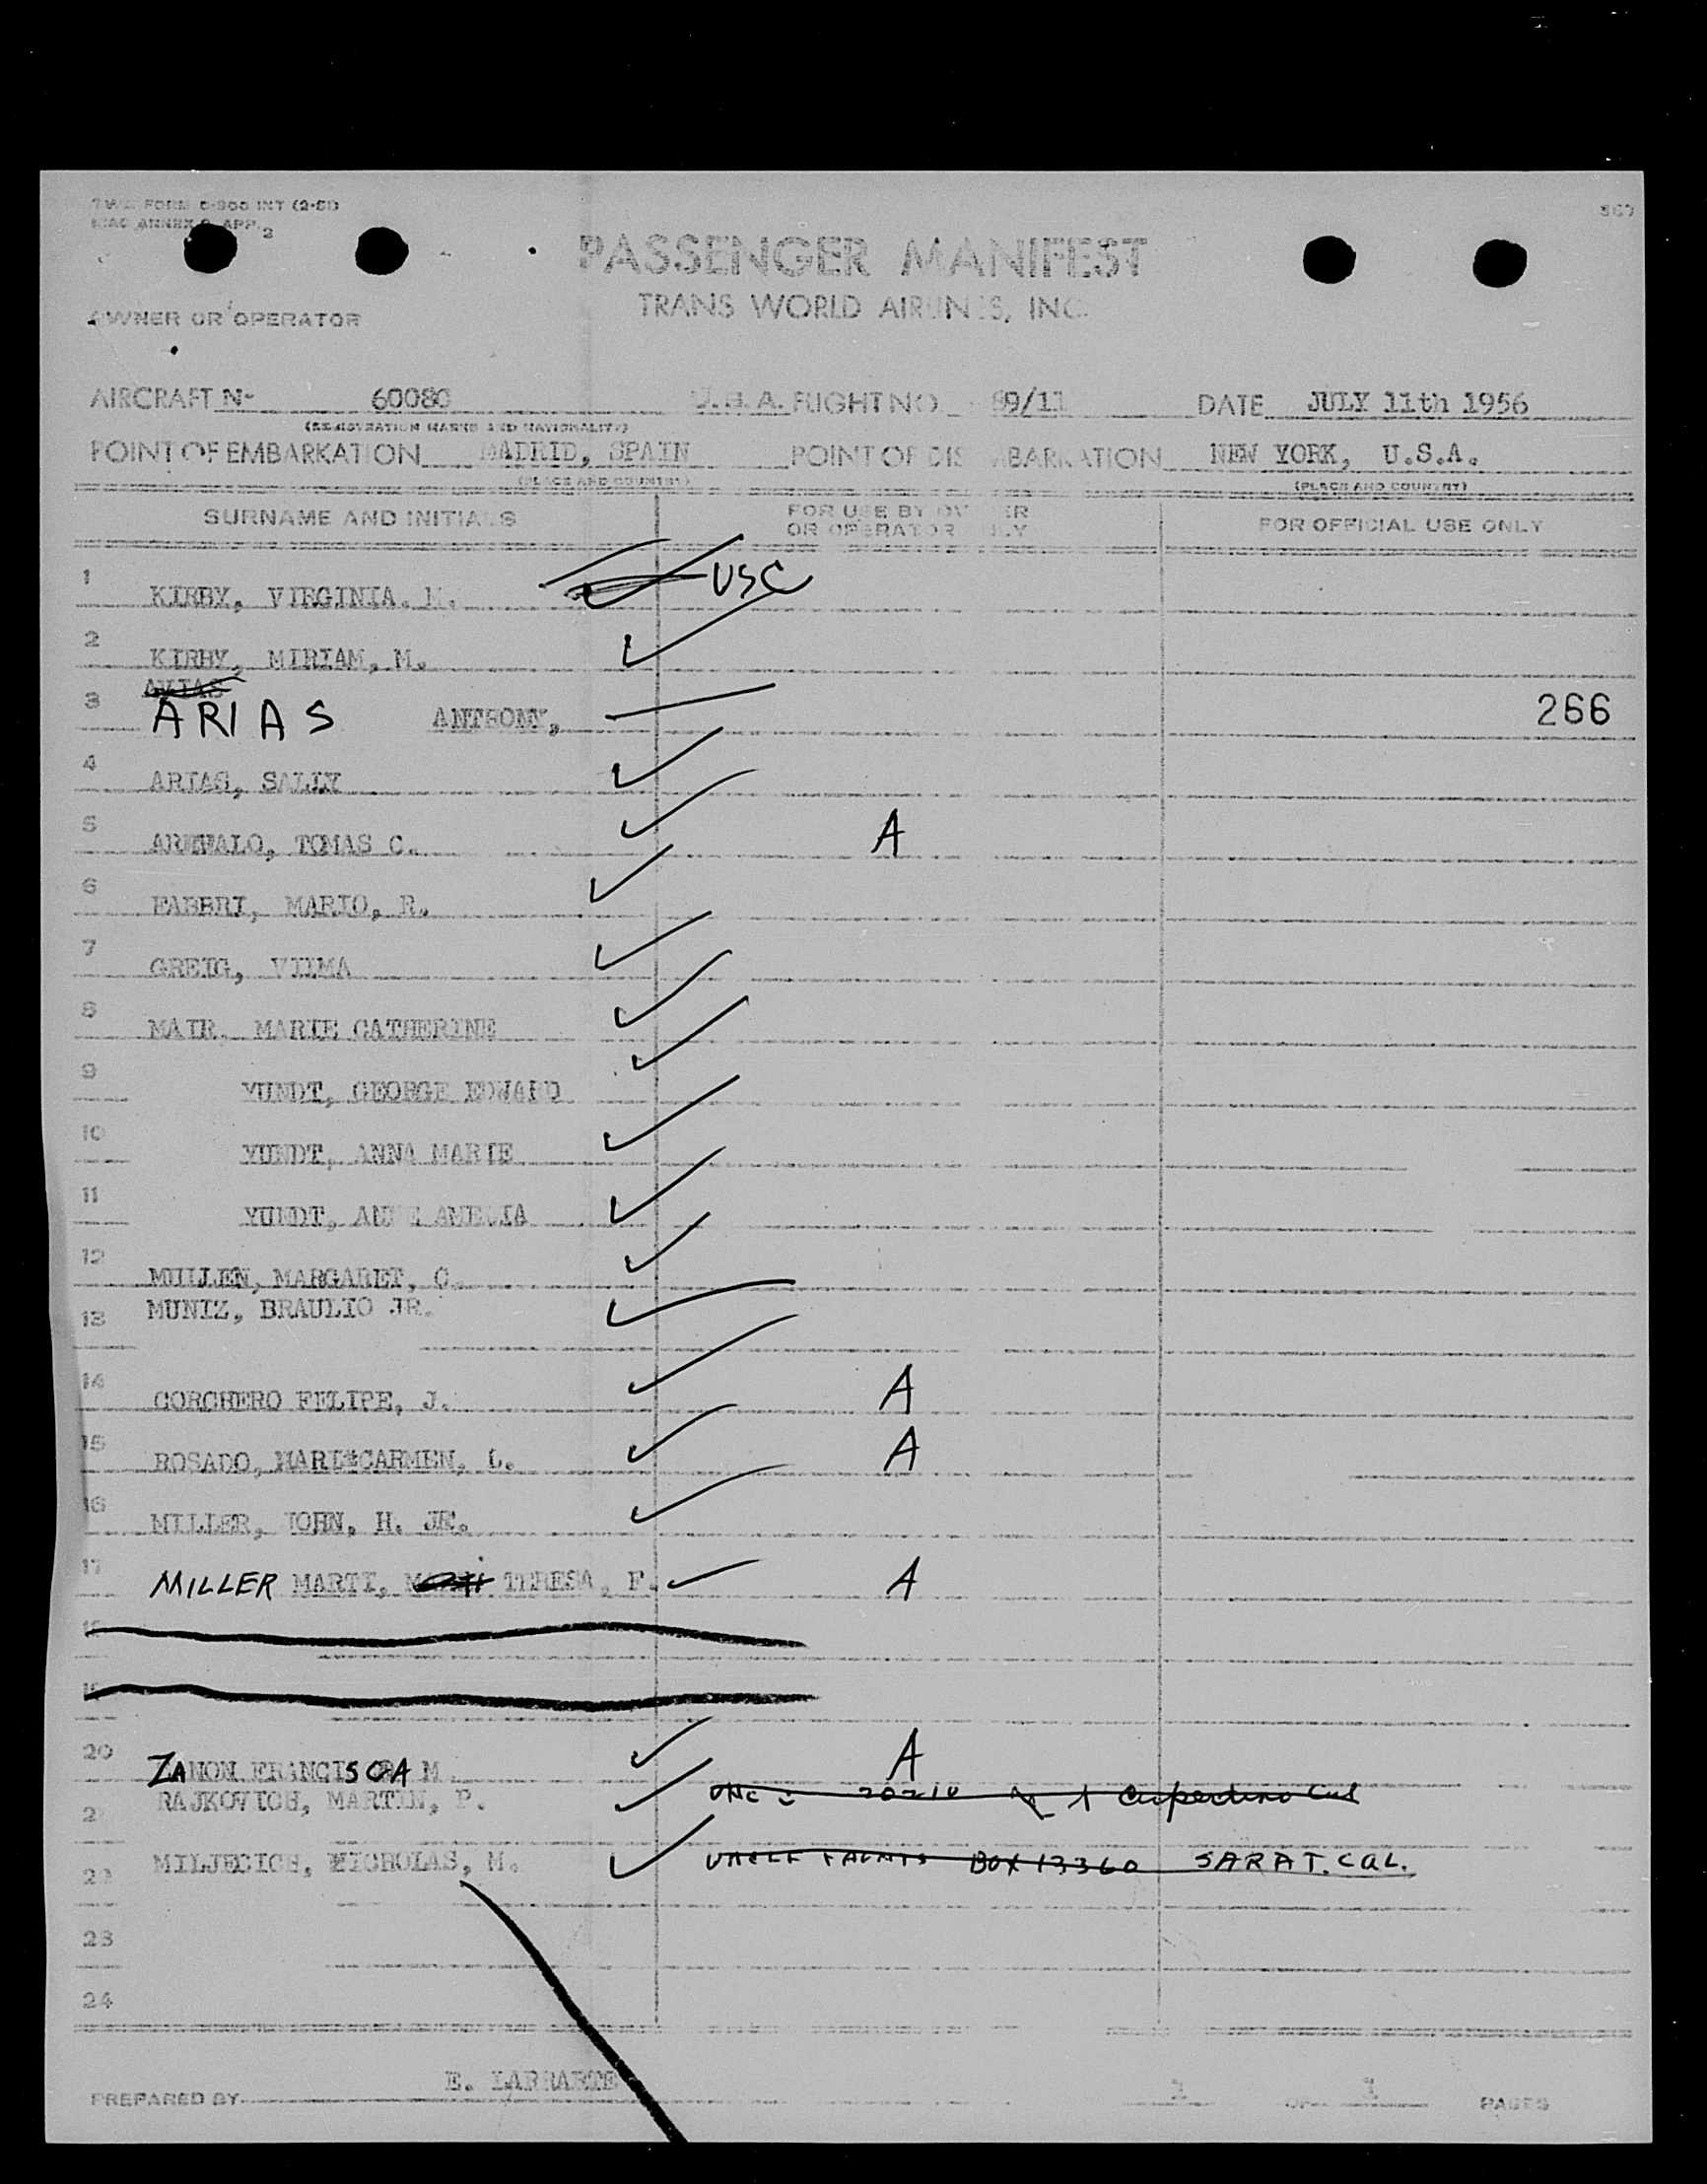 PASSENGER MANIFEST
TRANS WORLD AIRLINES, INC.
OWNER OR OPERATOR
AIRCRAFT N- 60080 U.S.A. FLIGHT NO 89/11 DATE JULY 11th 1956
(REGISTRATION MARKS AND NATIONALITY)
POINT OF EMBARKATION MADRID, SPAIN POINT OF DISEMBARKATION NEW YORK, U.S.A.
(PLACE AND COUNTRY) (PLACE AND COUNTRY)
SURNAME AND INITIALS FOR USE BY OWNER OR OPERATOR ONLY FOR OFFICIAL USE ONLY
1 KIRBY, VIRGINIA. M. USC
2 KIRBY, MIRIAM, M.
3 ARIAS ANTHONY, 266
4 ARIAS, SALLY
5 AREVALO, TOMAS C. A
6 FABBRI, MARIO, R.
7 GREIG, VILMA
8 MAIR. MARIE CATHERINE
9 YUNDT, GEORGE EDWARD
10 YUNDT, ANNA MARIE
11 YUNDT, ANNE AMELIA
12 MULLEN, MARGARET, C.
13 MUNIZ, BRAULIO JR.
14 CORCHERO FELIPE, J. A
15 ROSADO, CARMEN, L. A
16 MILLER, JOHN, H. JR.
17 MILLER MARTI, TERESA, F. A
20 ZANON FRANCISCA M. A
21 RAJKOVICH, MARTIN, P. 20210 Cupertino Cal
22 MILJECICH, NICHOLAS, M. BOX 13360 SARAT. CAL.
23
24
PREPARED BY E. LARRARTE 1 OF 1 PAGES